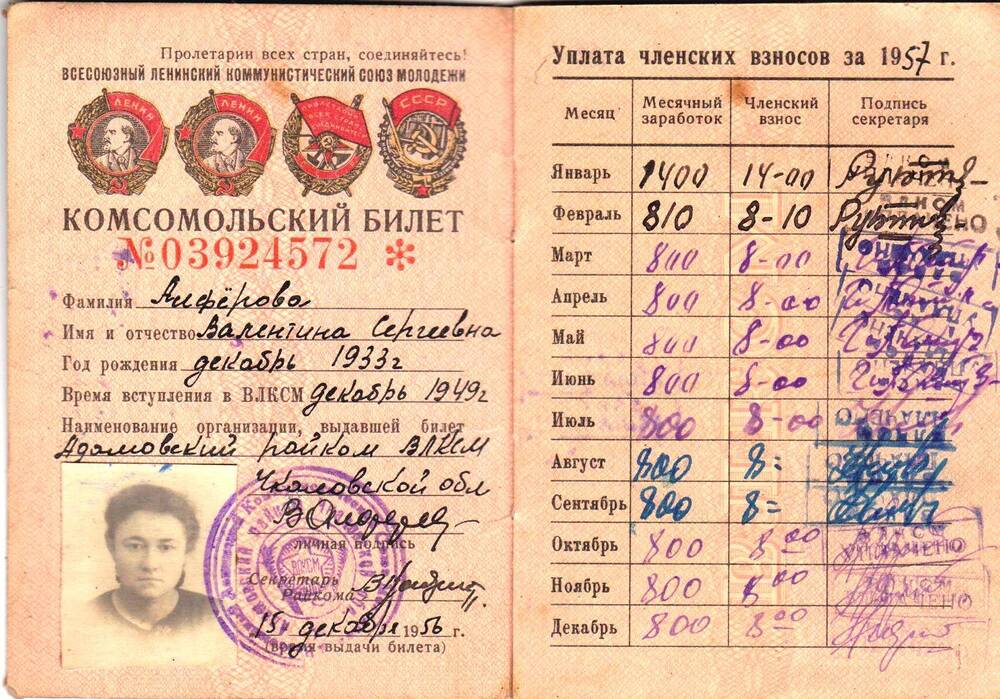 Пролетарии всех стран, соединяйтесь!
ВСЕСОЮЗНЫЙ ЛЕНИНСКИЙ КОММУНИСТИЧЕСКИЙ СОЮЗ МОЛОДЕЖИ
ЛЕНИН ЛЕНИН СССР
КОМСОМОЛЬСКИЙ БИЛЕТ
№03924572 *
Фамилия Алфёрова
Имя и отчество Валентина Сергеевна
Год рождения декабрь 1933г
Время вступления в ВЛКСМ декабрь 1949г
Наименование организации, выдавшей билет
Адамовский райком ВЛКСМ
Чкаловской обл
личная подпись
Секретарь
Райкома
15 декабря 1956 г.
(время выдачи билета)
Уплата членских взносов за 1957 г.
Месяц Месячный заработок Членский взнос Подпись секретаря
Январь 1400 14-00
Февраль 810 8-10
Март 800 8-00
Апрель 800 8-00
Май 800 8-00
Июнь 800 8-00
Июль 800 8-00
Август 800 8=
Сентябрь 800 8=
Октябрь 800 8 00
Ноябрь 800 8 00
Декабрь 800 8 00